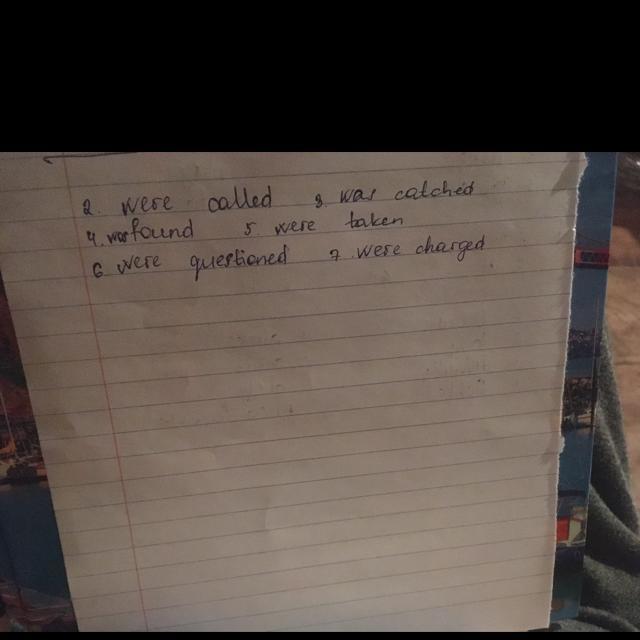 2. were called 3 was catched
4. was found 5 were taken
6 were questioned 7. were charged